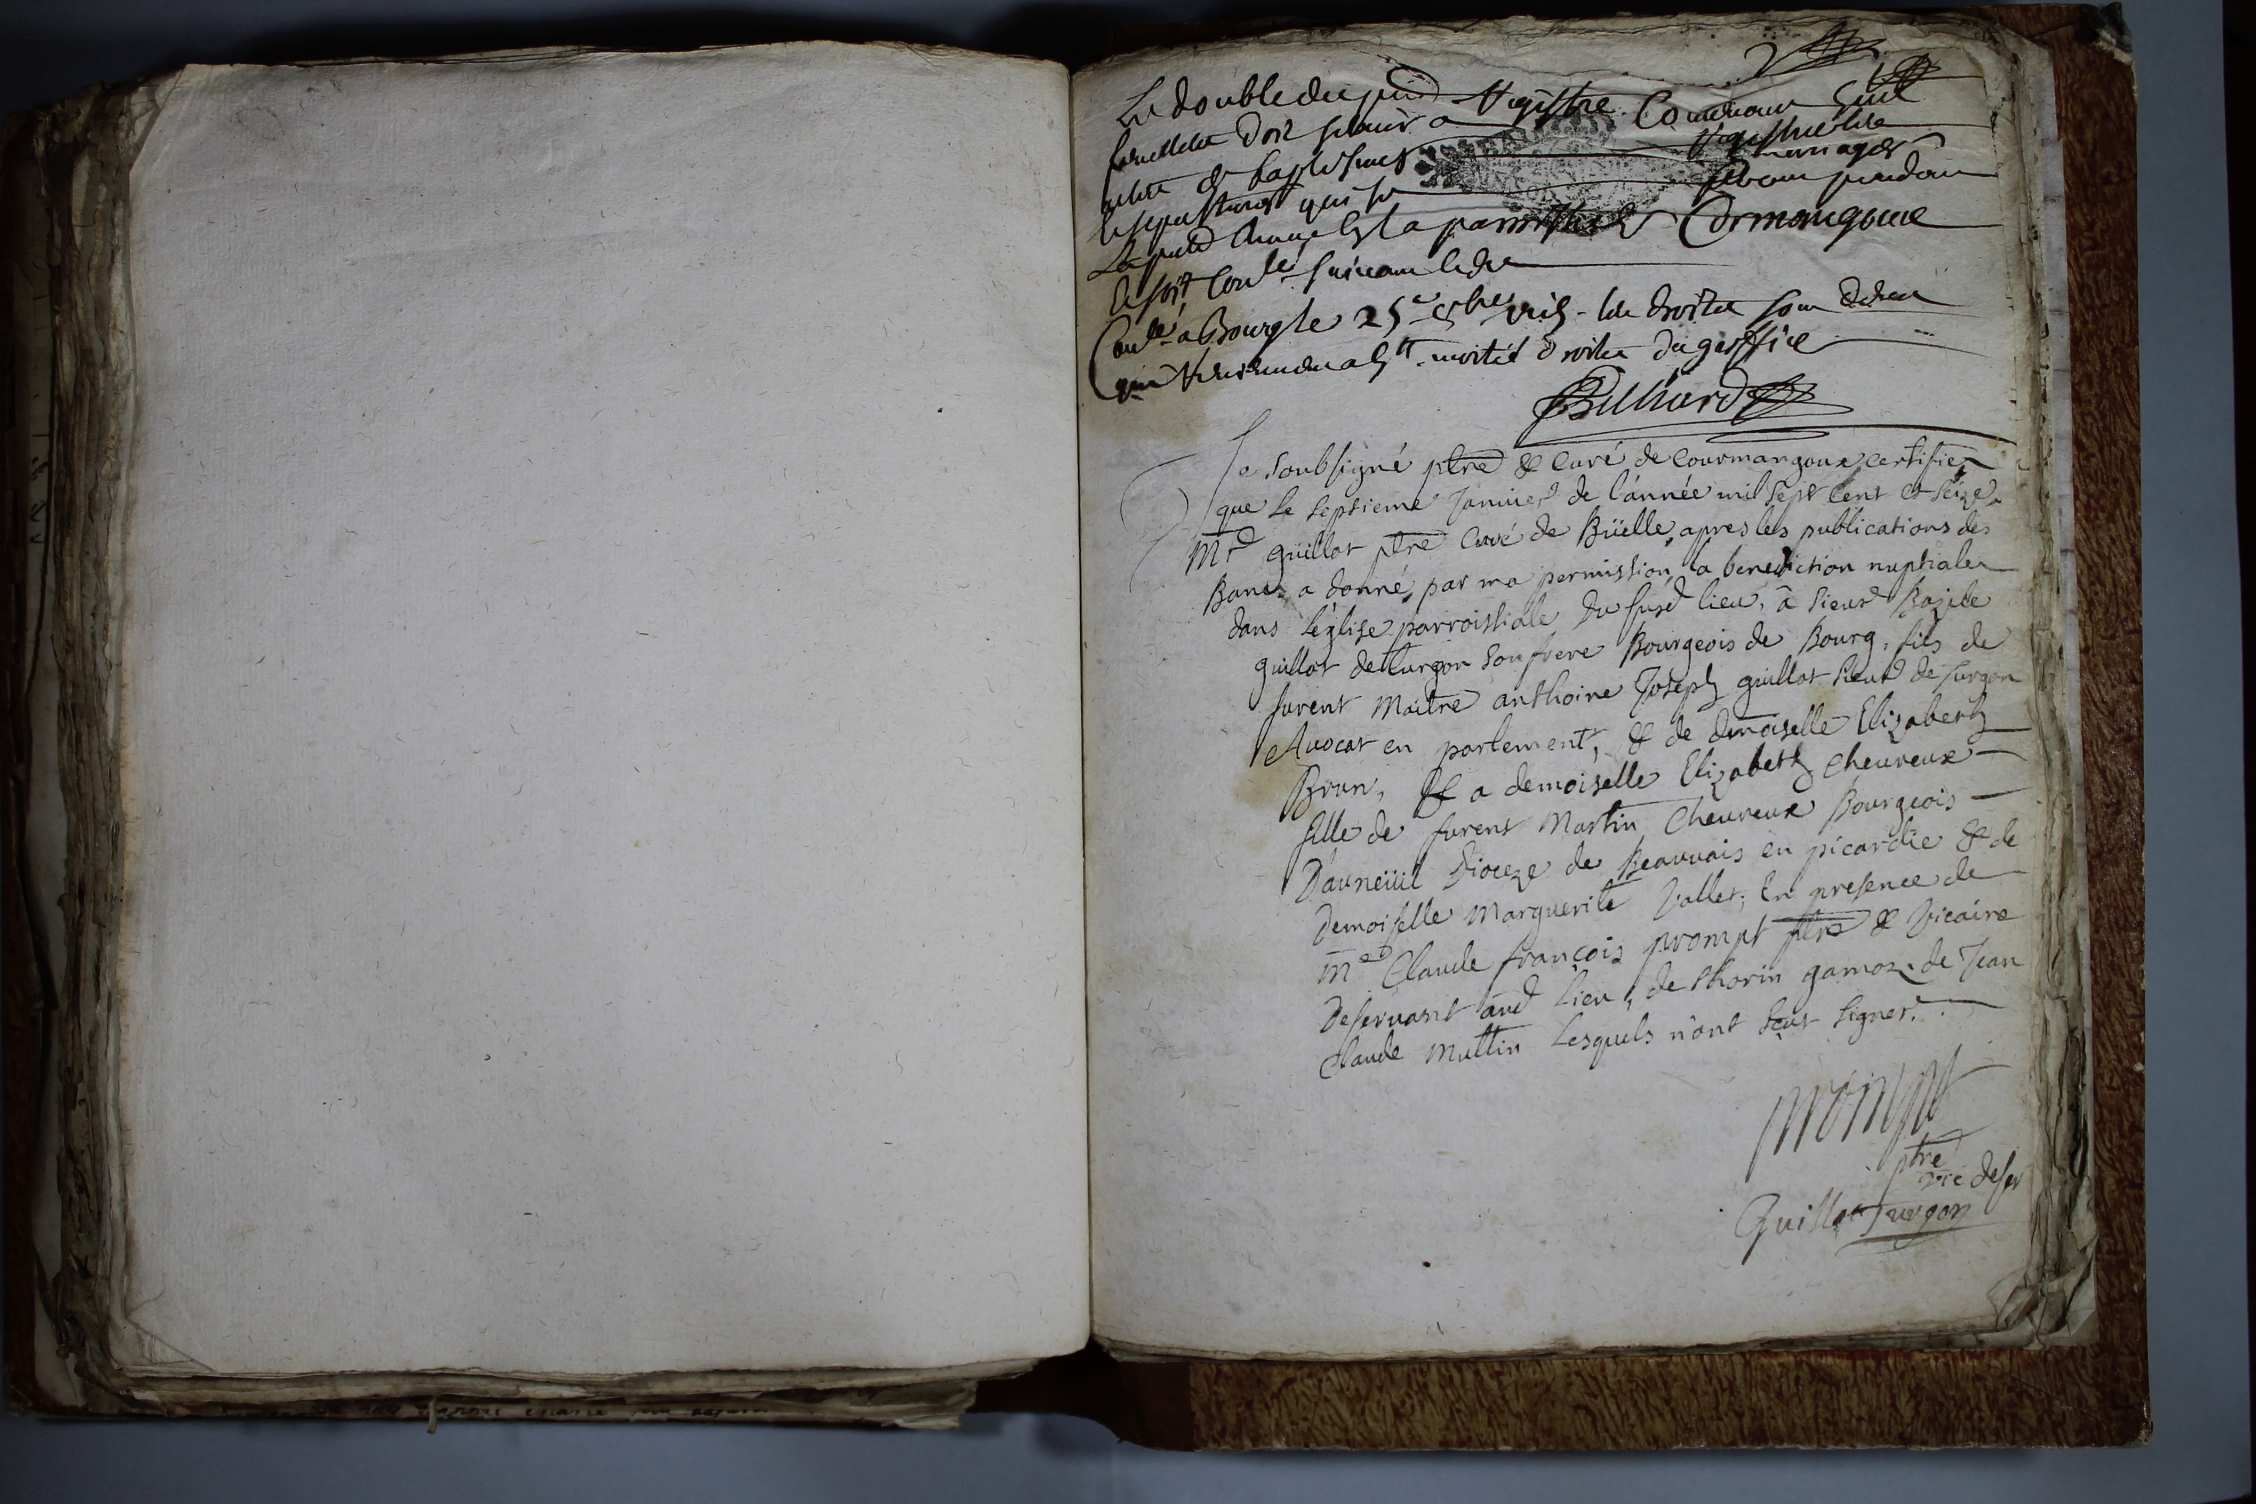 Le double du pnt Registre Contenant huit
feuillets doit servir a Registrer les
actes de baptesmes mariages
et sepultures qui se feront pendant
La pnte année En la parroisse de Cormangoux
Conlé a Bourg le 25e xbre 1715 - les droits
moitié droits du greffice
Billiard
Je soubsigné ptre & Curé de Courmangoux certifie
que le septieme Janvier de l'année mil sept cent et seize
Mr guillot ptre Curé de Büelle, apres les publications des
Bancs a donné, par ma permission, la benediction nuptiale
dans l'église parroissialle du susd lieu, à sieur Bazile
guillot de surgon son frere Bourgeois de Bourg, fils de
furent Maitre anthoine Joseph guillot sieur de surgon
Avocat en parlement, & de dmoiselle Elizabeth
Brun, & a demoiselle Elizabeth cheureux
fille de furent Martin Cheureux Bourgeois
D'auneüil Dioceze de Beauvais en picardie & de
Demoiselle Marguerite Vallet; En presence de
Me Claude françois prompt ptre & Vicaire
Deservant aud lieu, de thorin gamoz, de Jean
Claude Multin Lesquels n'ont sçut signer.
prompt
ptre
vre deser
Guillot surgon